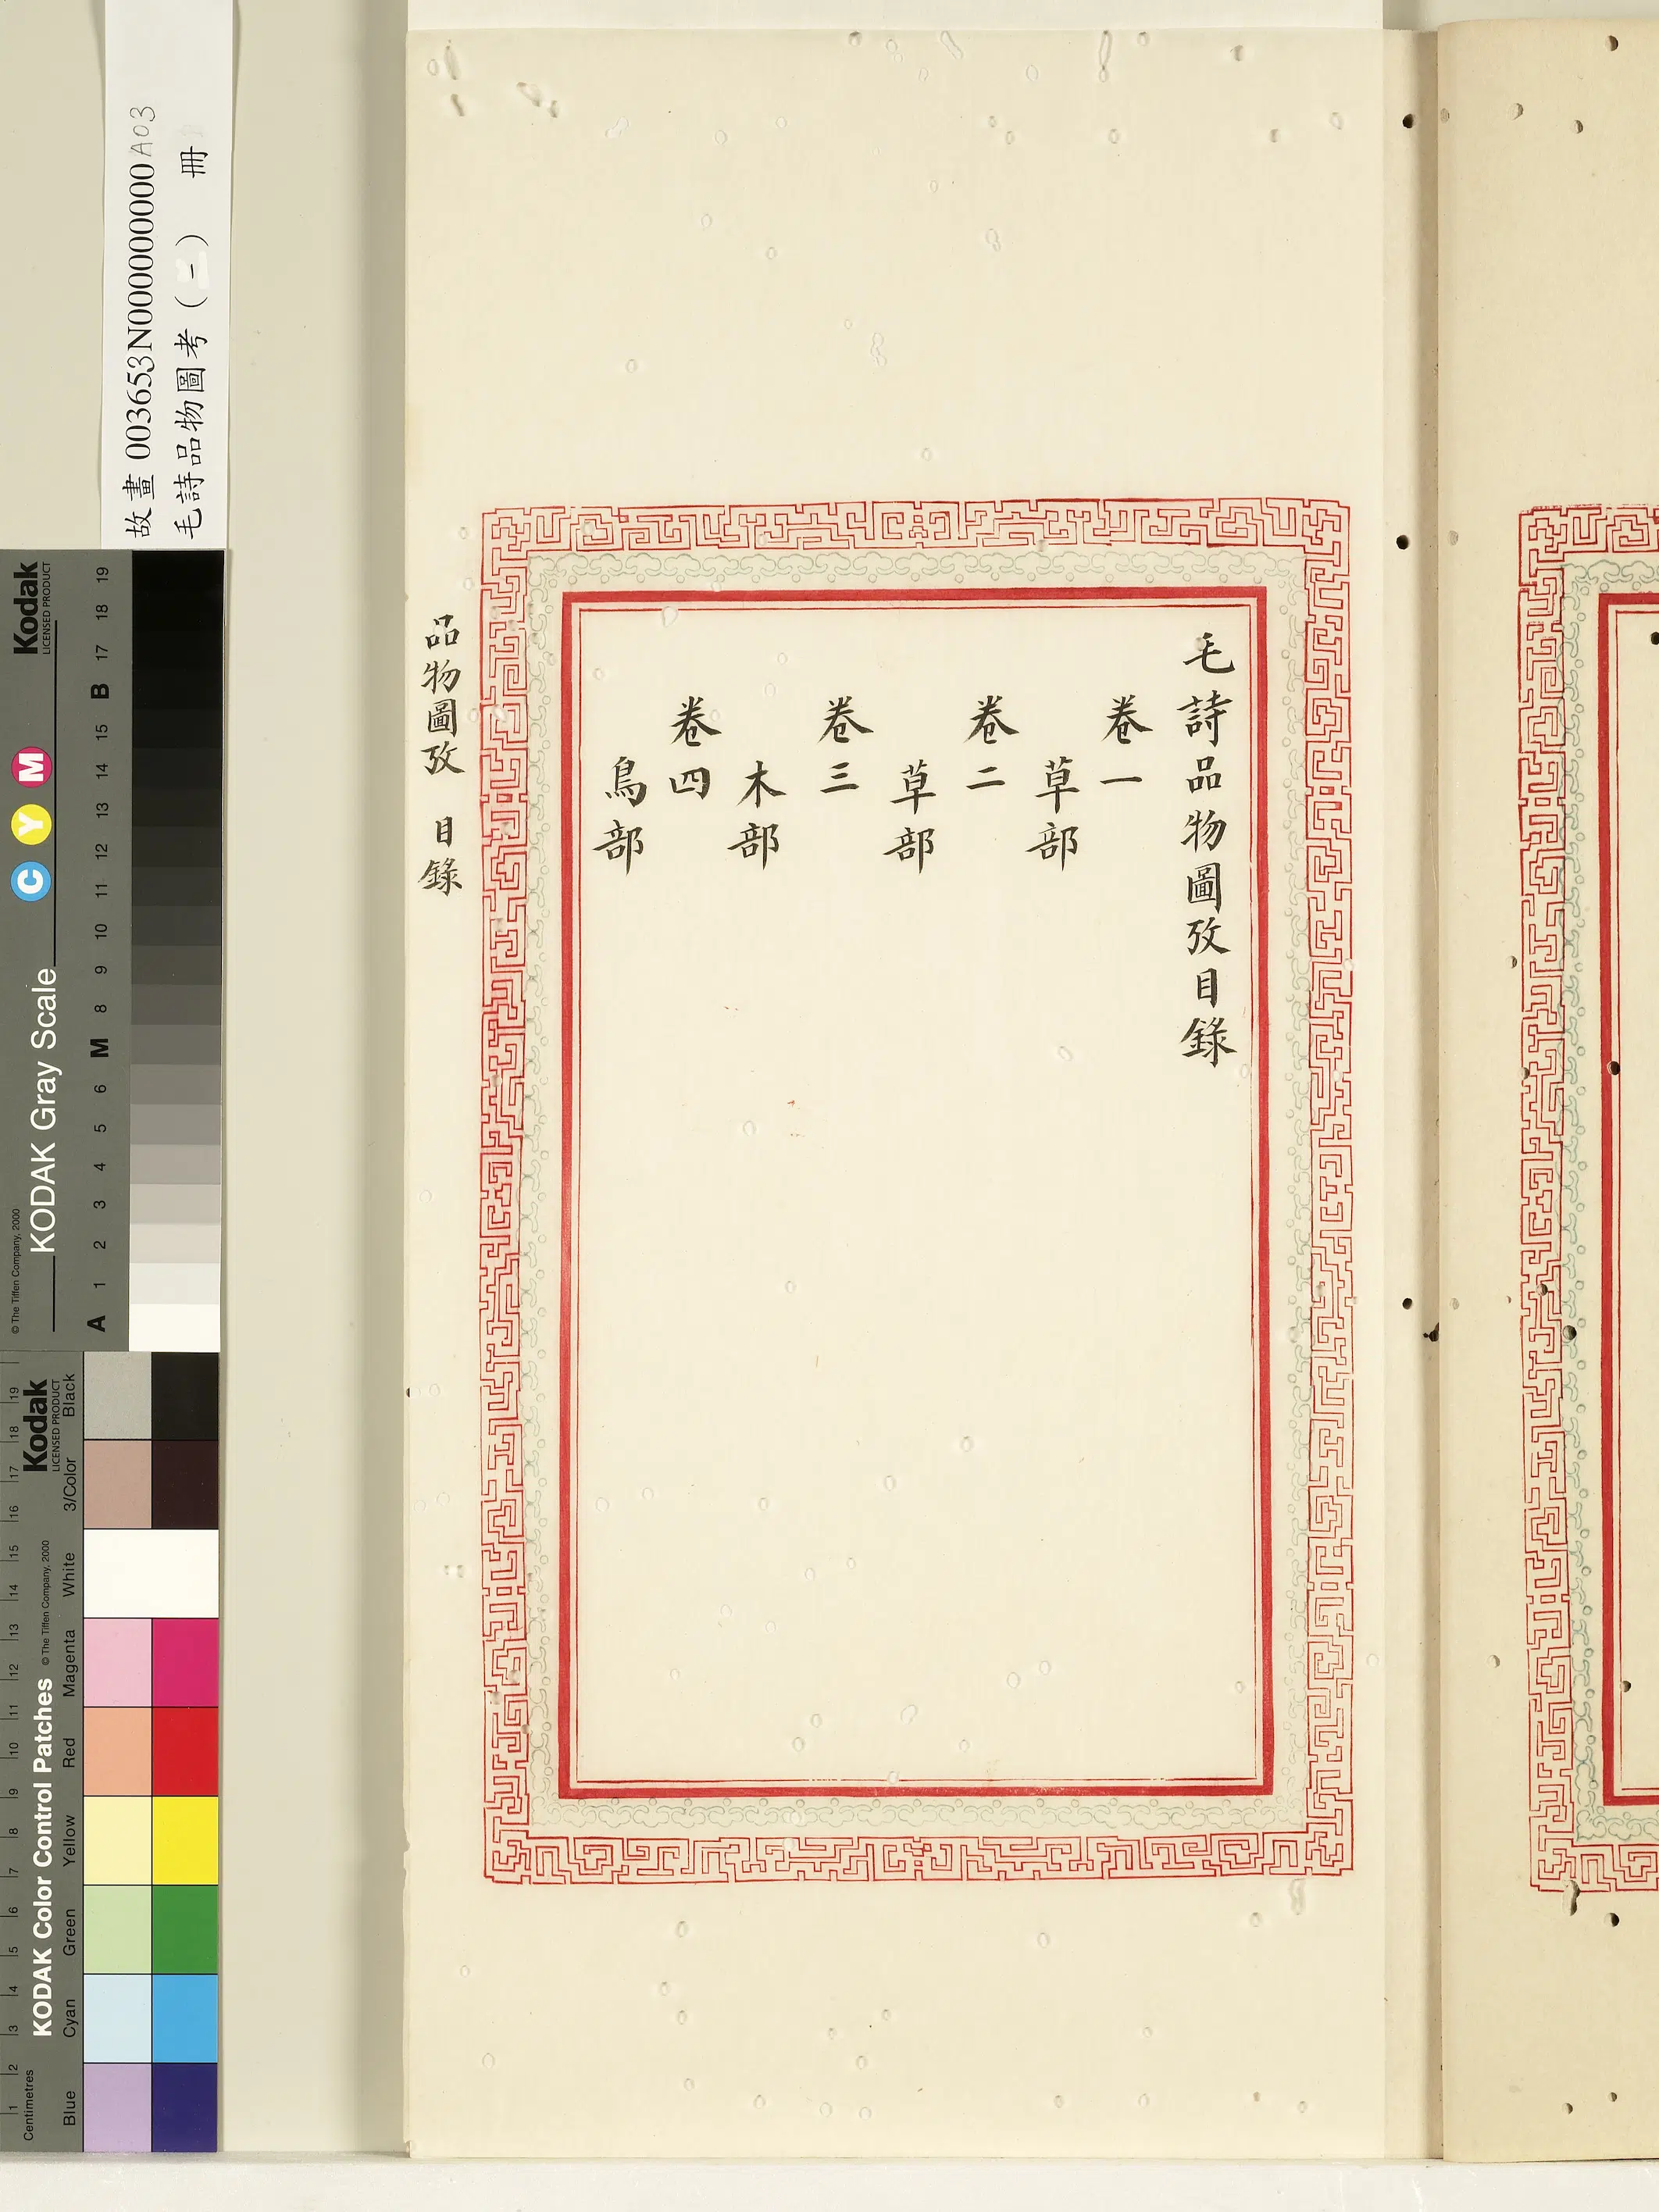 毛詩品物圖攷目錄
卷一
草部
卷二
草部
卷三
木部
卷四
鳥部
品物圖攷 目錄
故畫 003653N000000000A03
毛詩品物圖考(一) 冊
Kodak
LICENSED PRODUCT
C Y M
KODAK Gray Scale
© The Tiffen Company, 2000
A 1 2 3 4 5 6 M 8 9 10 11 12 13 14 15 B 17 18 19
Kodak
LICENSED PRODUCT
KODAK Color Control Patches
© The Tiffen Company, 2000
Centimetres
1 2 3 4 5 6 7 8 9 10 11 12 13 14 15 16 17 18 19
Blue Cyan Green Yellow Red Magenta White 3/Color Black